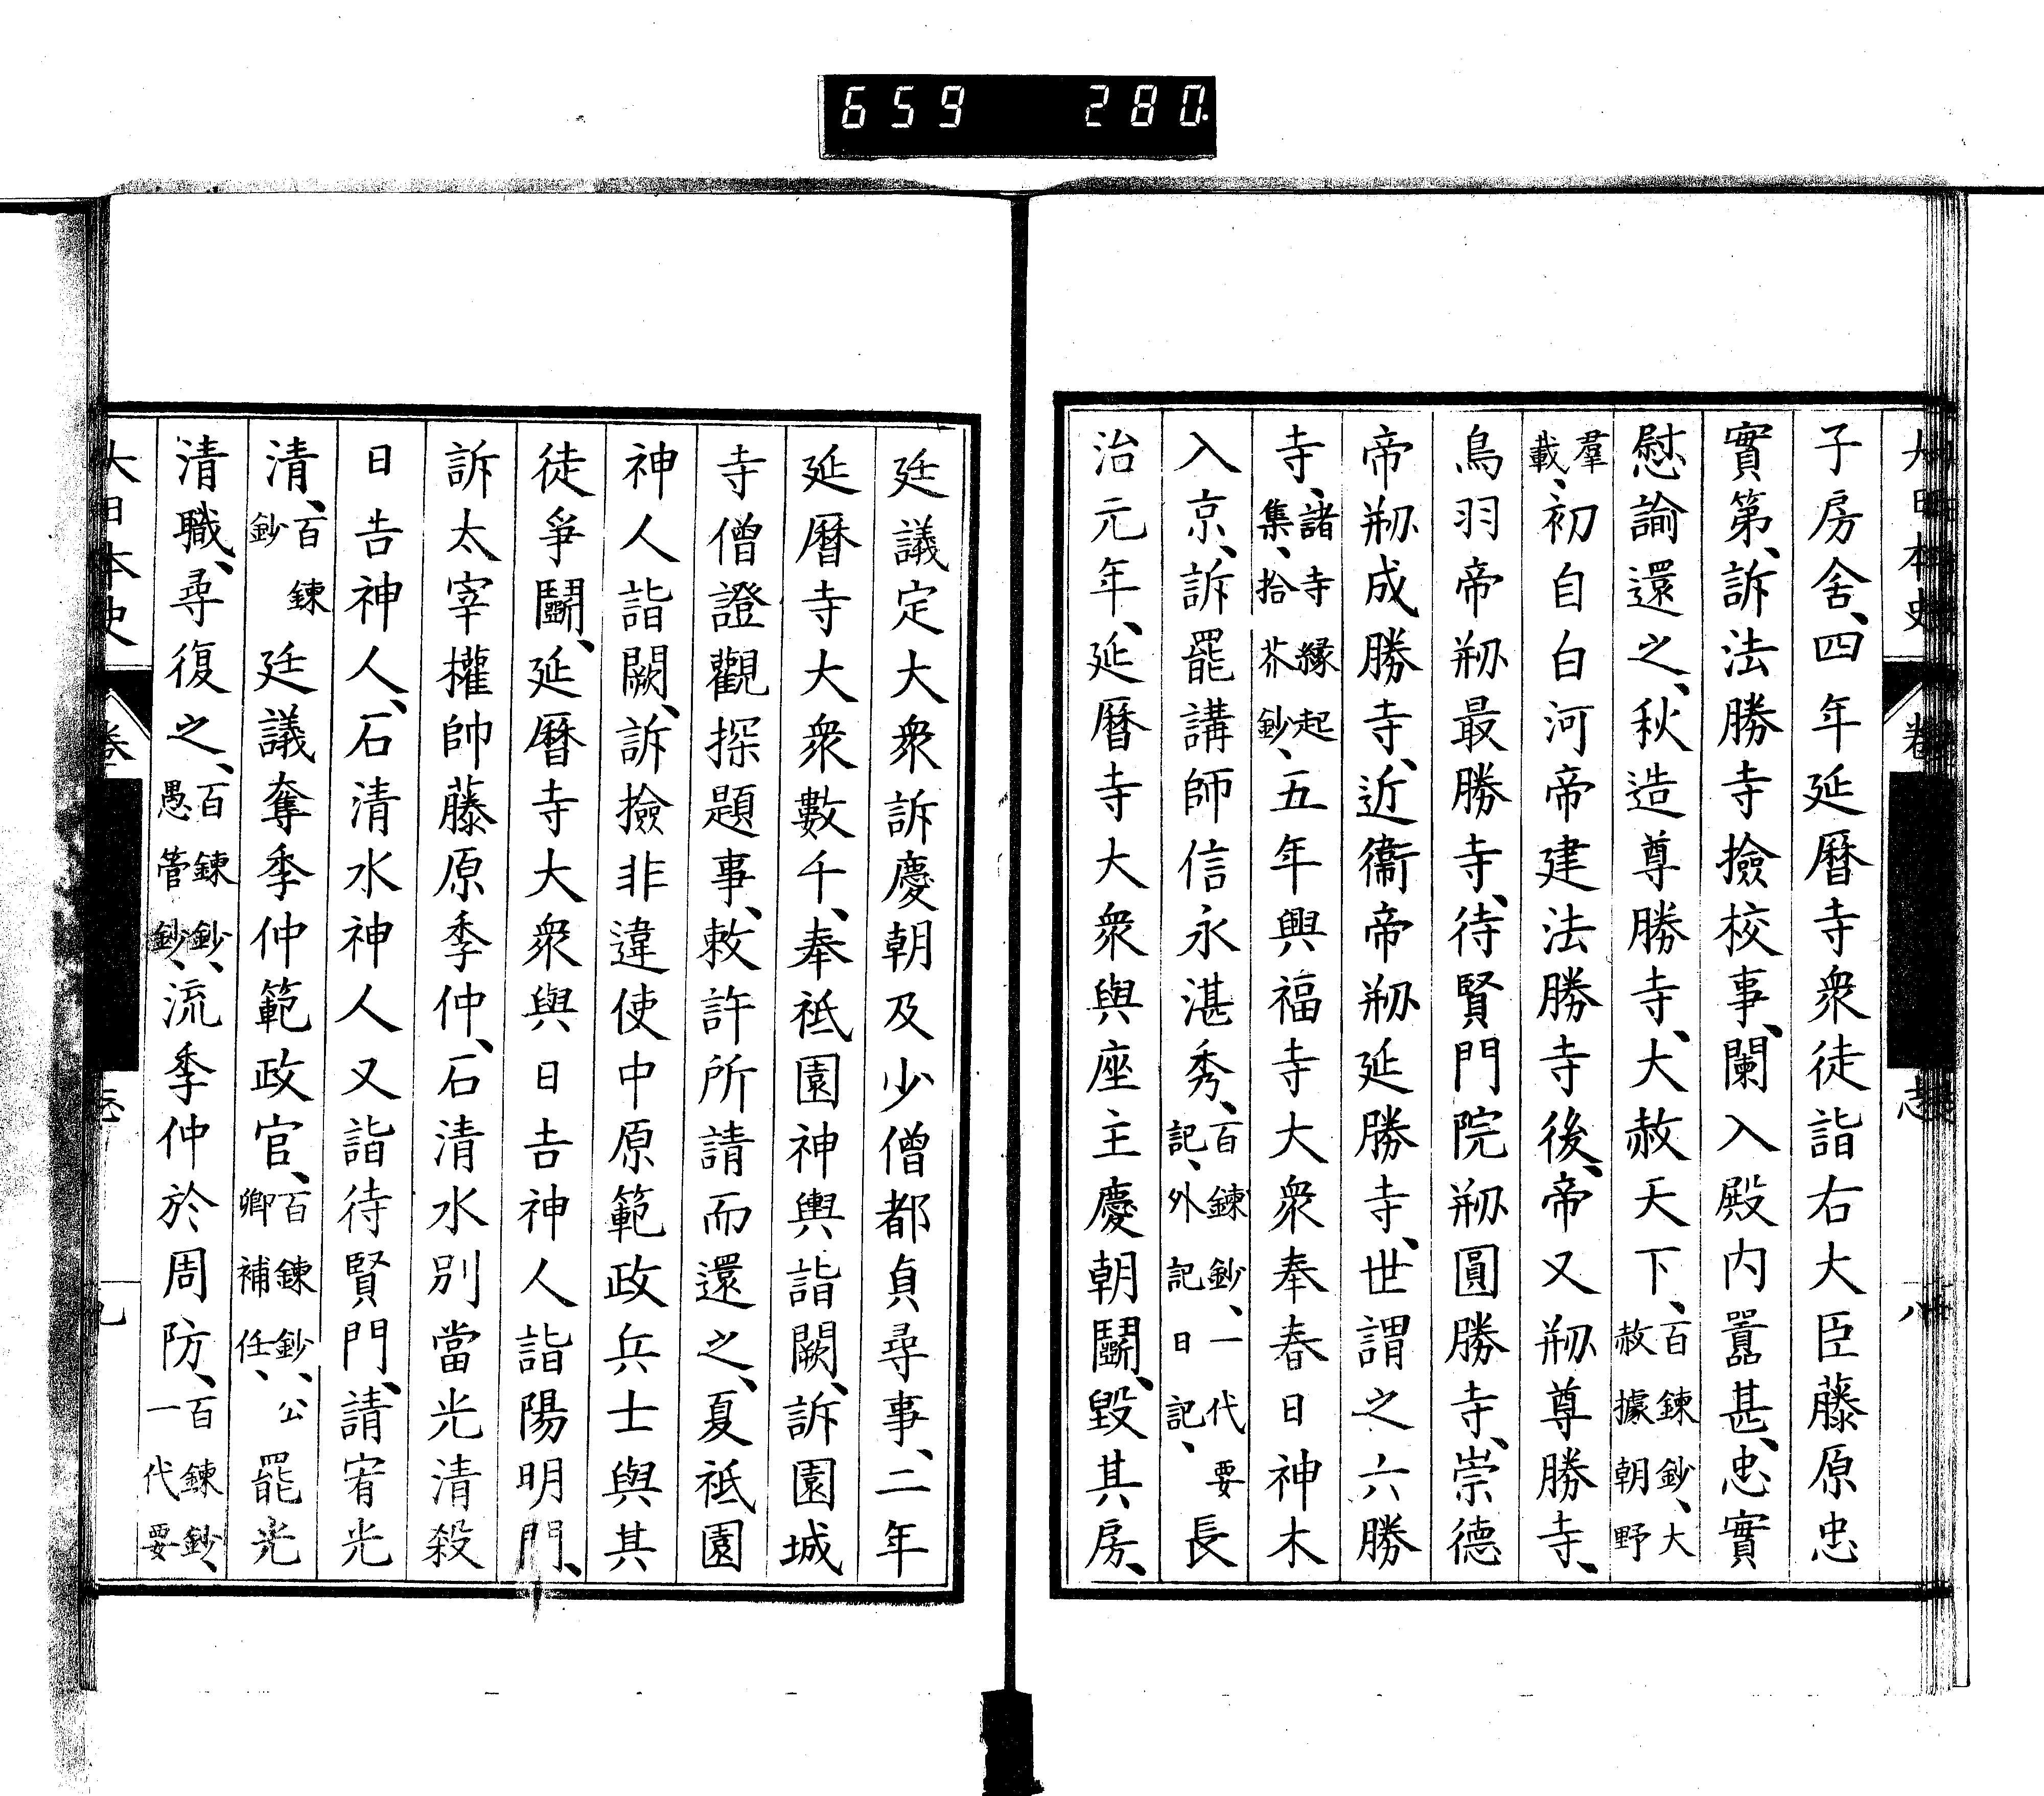 659 280
子房舍、四年延曆寺衆徒詣右大臣藤原忠
實第、訴法勝寺撿校事、闌入殿内囂甚、忠實
慰諭還之、秋造尊勝寺、大赦天下、百鍊鈔、大赦據朝野
羣載、初自白河帝建法勝寺後、帝又剏尊勝寺、
鳥羽帝剏最勝寺、待賢門院剏圓勝寺、崇德
帝剏成勝寺、近衞帝剏延勝寺、世謂之六勝
寺、諸寺縁起集、拾芥鈔、五年興福寺大衆奉春日神木
入京、訴罷講師信永湛秀、百鍊鈔、一代要記、外記日記、長
治元年、延曆寺大衆與座主慶朝鬭、毀其房、
廷議定大衆訴慶朝及少僧都貞尋事、二年
延曆寺大衆數千、奉祗園神輿詣闕、訴園城
寺僧證觀探題事、敕許所請而還之、夏祗園
神人詣闕、訴撿非違使中原範政兵士與其
徒爭鬭、延曆寺大衆與日吉神人詣陽明門、
訴太宰權帥藤原季仲、石清水別當光清殺
日吉神人、石清水神人又詣待賢門、請宥光
清、百鍊鈔 廷議奪季仲範政官、百鍊鈔、公卿補任、罷光
清職、尋復之、百鍊鈔、愚管鈔、流季仲於周防、百鍊鈔、一代要
大日本史